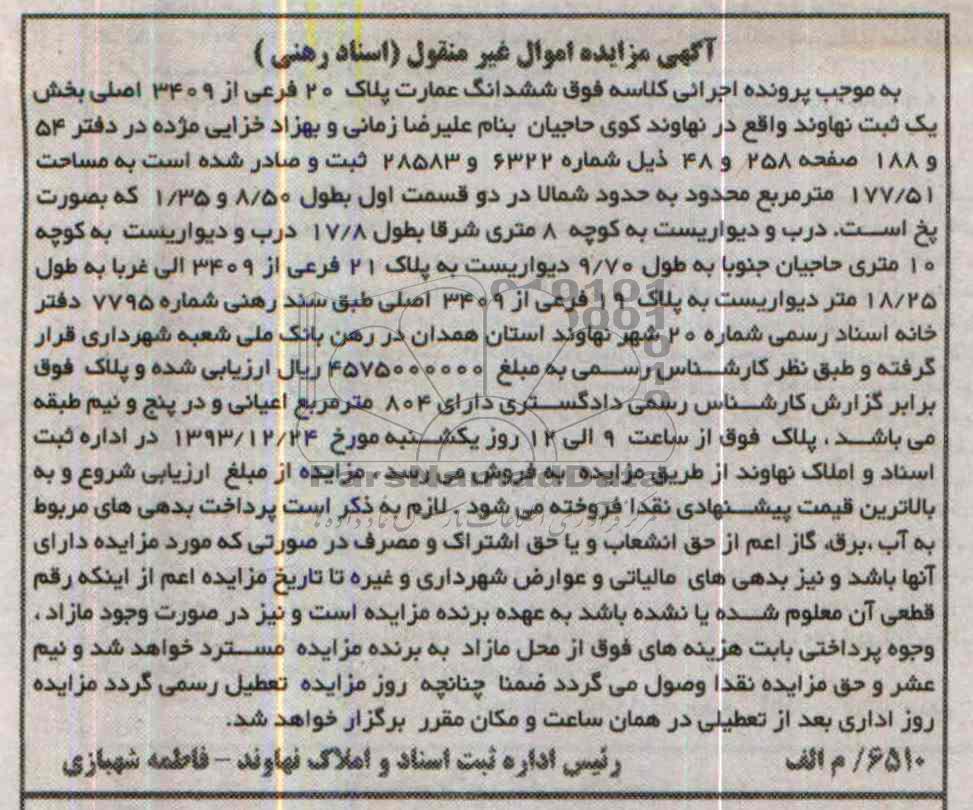 آگهی مزایده اموال غیر منقول (اسناد رهنی )
به موجب پرونده اجرائی کلاسه فوق ششدانگ عمارت پلاک ۲۰ فرعی از ۳۴۰۹ اصلی بخش
یک ثبت نهاوند واقع در نهاوند کوی حاجیان بنام علیرضا زمانی و بهزاد خزایی مژده در دفتر ۵۴
و ۱۸۸ صفحه ۲۵۸ و ۴۸ ذیل شماره ۶۳۲۲ و ۲۸۵۸۳ ثبت و صادر شده است به مساحت
۱۷۷/۵۱ مترمربع محدود به حدود شمالا در دو قسمت اول بطول ۸/۵۰ و ۱/۳۵ که بصورت
پخ است. درب و دیواریست به کوچه ۸ متری شرقا بطول ۱۷/۸ درب و دیواریست به کوچه
۱۰ متری حاجیان جنوبا به طول ۹/۷۰ دیواریست به پلاک ۲۱ فرعی از ۳۴۰۹ الی غربا به طول
۱۸/۲۵ متر دیواریست به پلاک ۱۹ فرعی از ۳۴۰۹ اصلی طبق سند رهنی شماره ۷۷۹۵ دفتر
خانه اسناد رسمی شماره ۲۰ شهر نهاوند استان همدان در رهن بانک ملی شعبه شهرداری قرار
گرفته و طبق نظر کارشناس رسمی به مبلغ ۴۵۷۵۰۰۰۰۰۰ ریال ارزیابی شده و پلاک فوق
برابر گزارش کارشناس رسمی دادگستری دارای ۸۰۴ مترمربع اعیانی و در پنج و نیم طبقه
می باشد ، پلاک فوق از ساعت ۹ الی ۱۲ روز یکشنبه مورخ ۱۳۹۳/۱۲/۲۴ در اداره ثبت
اسناد و املاک نهاوند از طریق مزایده به فروش می رسد . مزایده از مبلغ ارزیابی شروع و به
بالاترین قیمت پیشنهادی نقدا فروخته می شود . لازم به ذکر است پرداخت بدهی های مربوط
به آب ،برق، گاز اعم از حق انشعاب و یا حق اشتراک و مصرف در صورتی که مورد مزایده دارای
آنها باشد و نیز بدهی های مالیاتی و عوارض شهرداری و غیره تا تاریخ مزایده اعم از اینکه رقم
قطعی آن معلوم شده یا نشده باشد به عهده برنده مزایده است و نیز در صورت وجود مازاد ،
وجوه پرداختی بابت هزینه های فوق از محل مازاد به برنده مزایده مسترد خواهد شد و نیم
عشر و حق مزایده نقدا وصول می گردد ضمنا چنانچه روز مزایده تعطیل رسمی گردد مزایده
روز اداری بعد از تعطیلی در همان ساعت و مکان مقرر برگزار خواهد شد.
۶۵۱۰/ م الف رئیس اداره ثبت اسناد و املاک نهاوند – فاطمه شهبازی
ParsNamadData